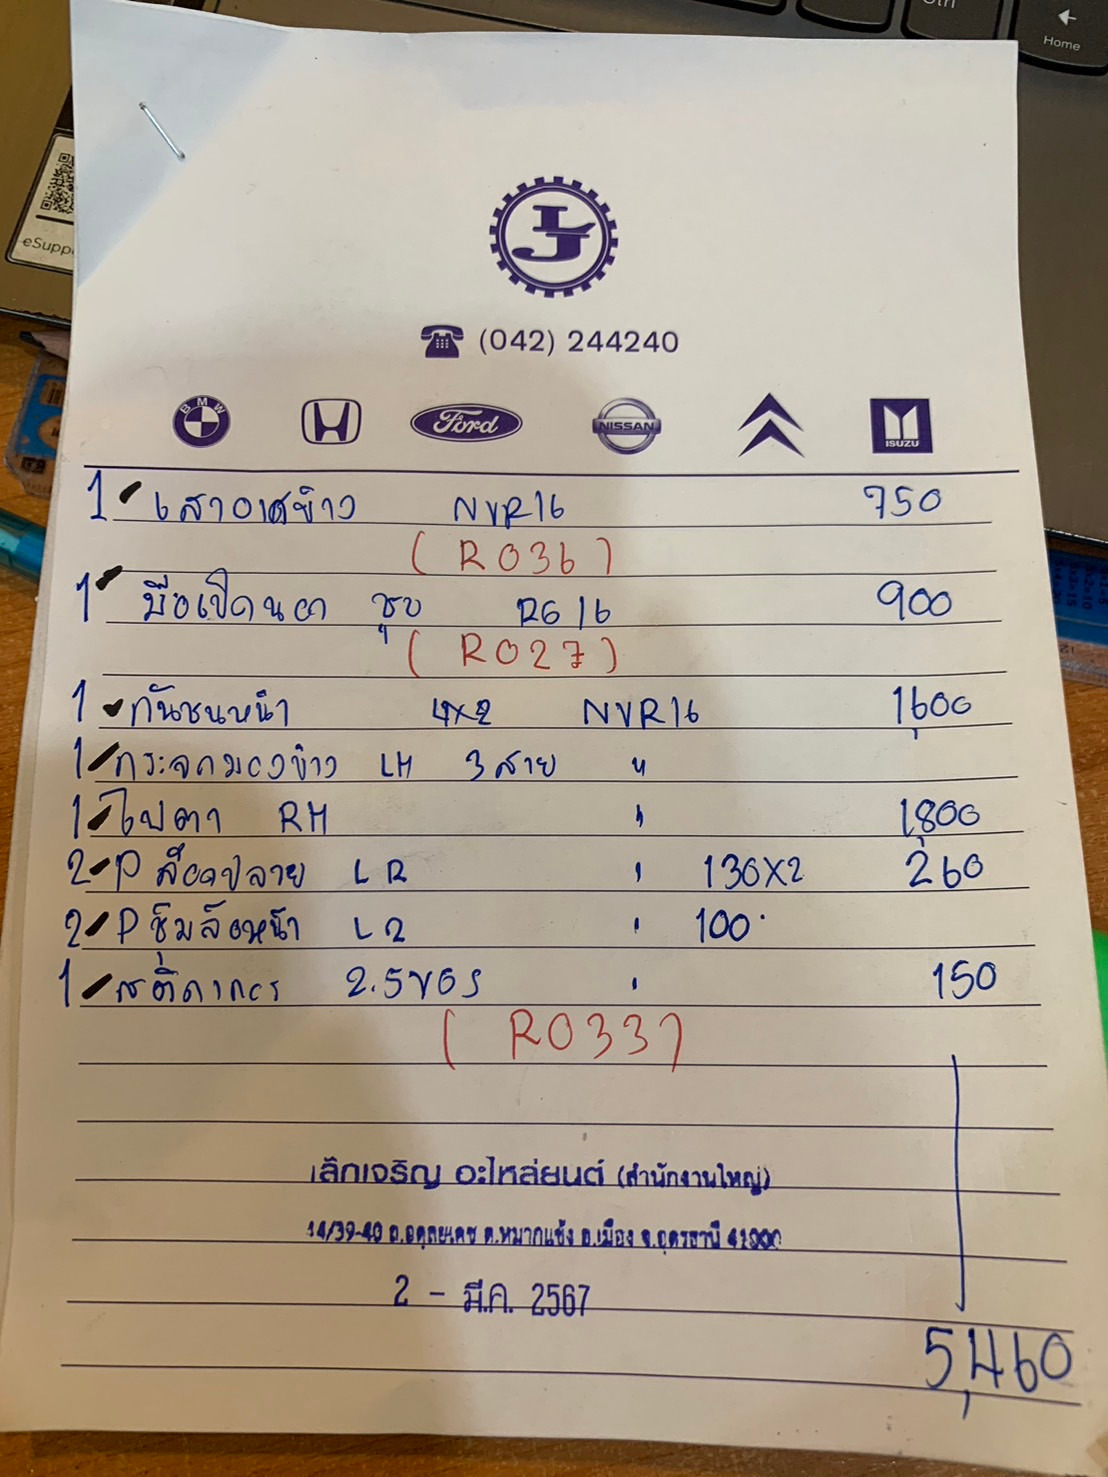 Ctrl
Home
eSupp
LJ
(042) 244240
BMW
Ford
NISSAN
ISUZU
1 เสาอากาศข้าง NVR16 750
(R036)
1 มือเปิดนอก ชุบ RG16 900
(R027)
1 กันชนหน้า 4x2 NVR16 1,600
1 กระจกมองข้าง LH 3 สาย "
1 ไฟตา RH " 1,800
2 P ล้อ ปลาย LR " 130X2 260
2 P ซุ้มล้อหน้า L2 " 100
1 สติกเกอร์ 2.5 " 150
(R033)
เล็กเจริญ อะไหล่ยนต์ (สำนักงานใหญ่)
14/39-40 ถ.อดุลยเดช ต.หมากแข้ง อ.เมือง จ.อุดรธานี 41000
2 - มี.ค. 2567
5,460